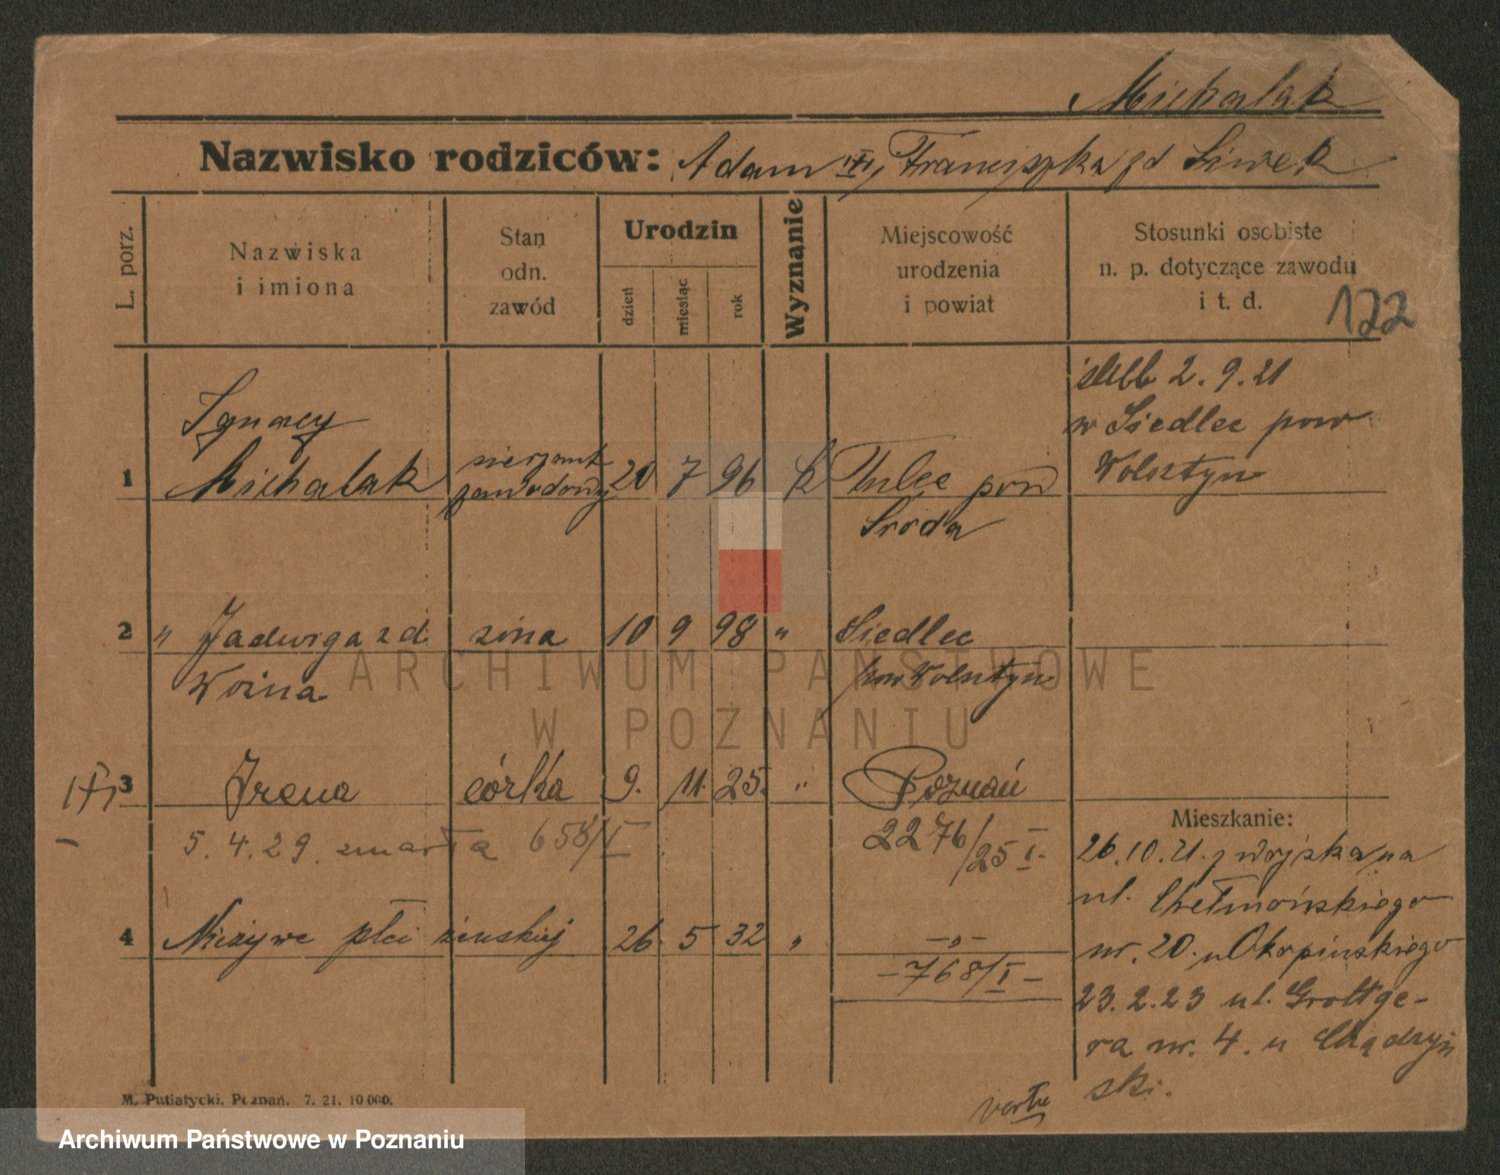 Michalak
Nazwisko rodziców: Adam, Franciszka zd Siwek
L. porz.
Nazwiska
i imiona
Stan
odn.
zawód
Urodzin
dzień
miesiąc
rok
Wyznanie
Miejscowość
urodzenia
i powiat
Stosunki osobiste
n. p. dotyczące zawodu
i t. d.
122
ślub 2.9.21
w Siedlec pow
Wolsztyn
1 Ignacy
Michalak sierżant zawodowy 20 7 96 k Tulce pow
Środa
2 " Jadwiga zd żona 10 9 98 " Siedlec
Woźna pow Wolsztyn
3 Irena córka 9. 11. 25. " Poznań
5.4.29. zmarła 658/I 2276/25 I.
4 Nieżywe płci żeńskiej 26. 5 32 " —"—
—768/I—
Mieszkanie:
26.10.21. z wojska na
ul. Chełmońskiego
nr. 20. u
23.2.23 ul. Grottge-
ra nr. 4. u Chądzyń
ski.
verte
M. Putiatycki, Poznań. 7. 21. 10 000.
ARCHIWUM PAŃSTWOWE
W POZNANIU
Archiwum Państwowe w Poznaniu